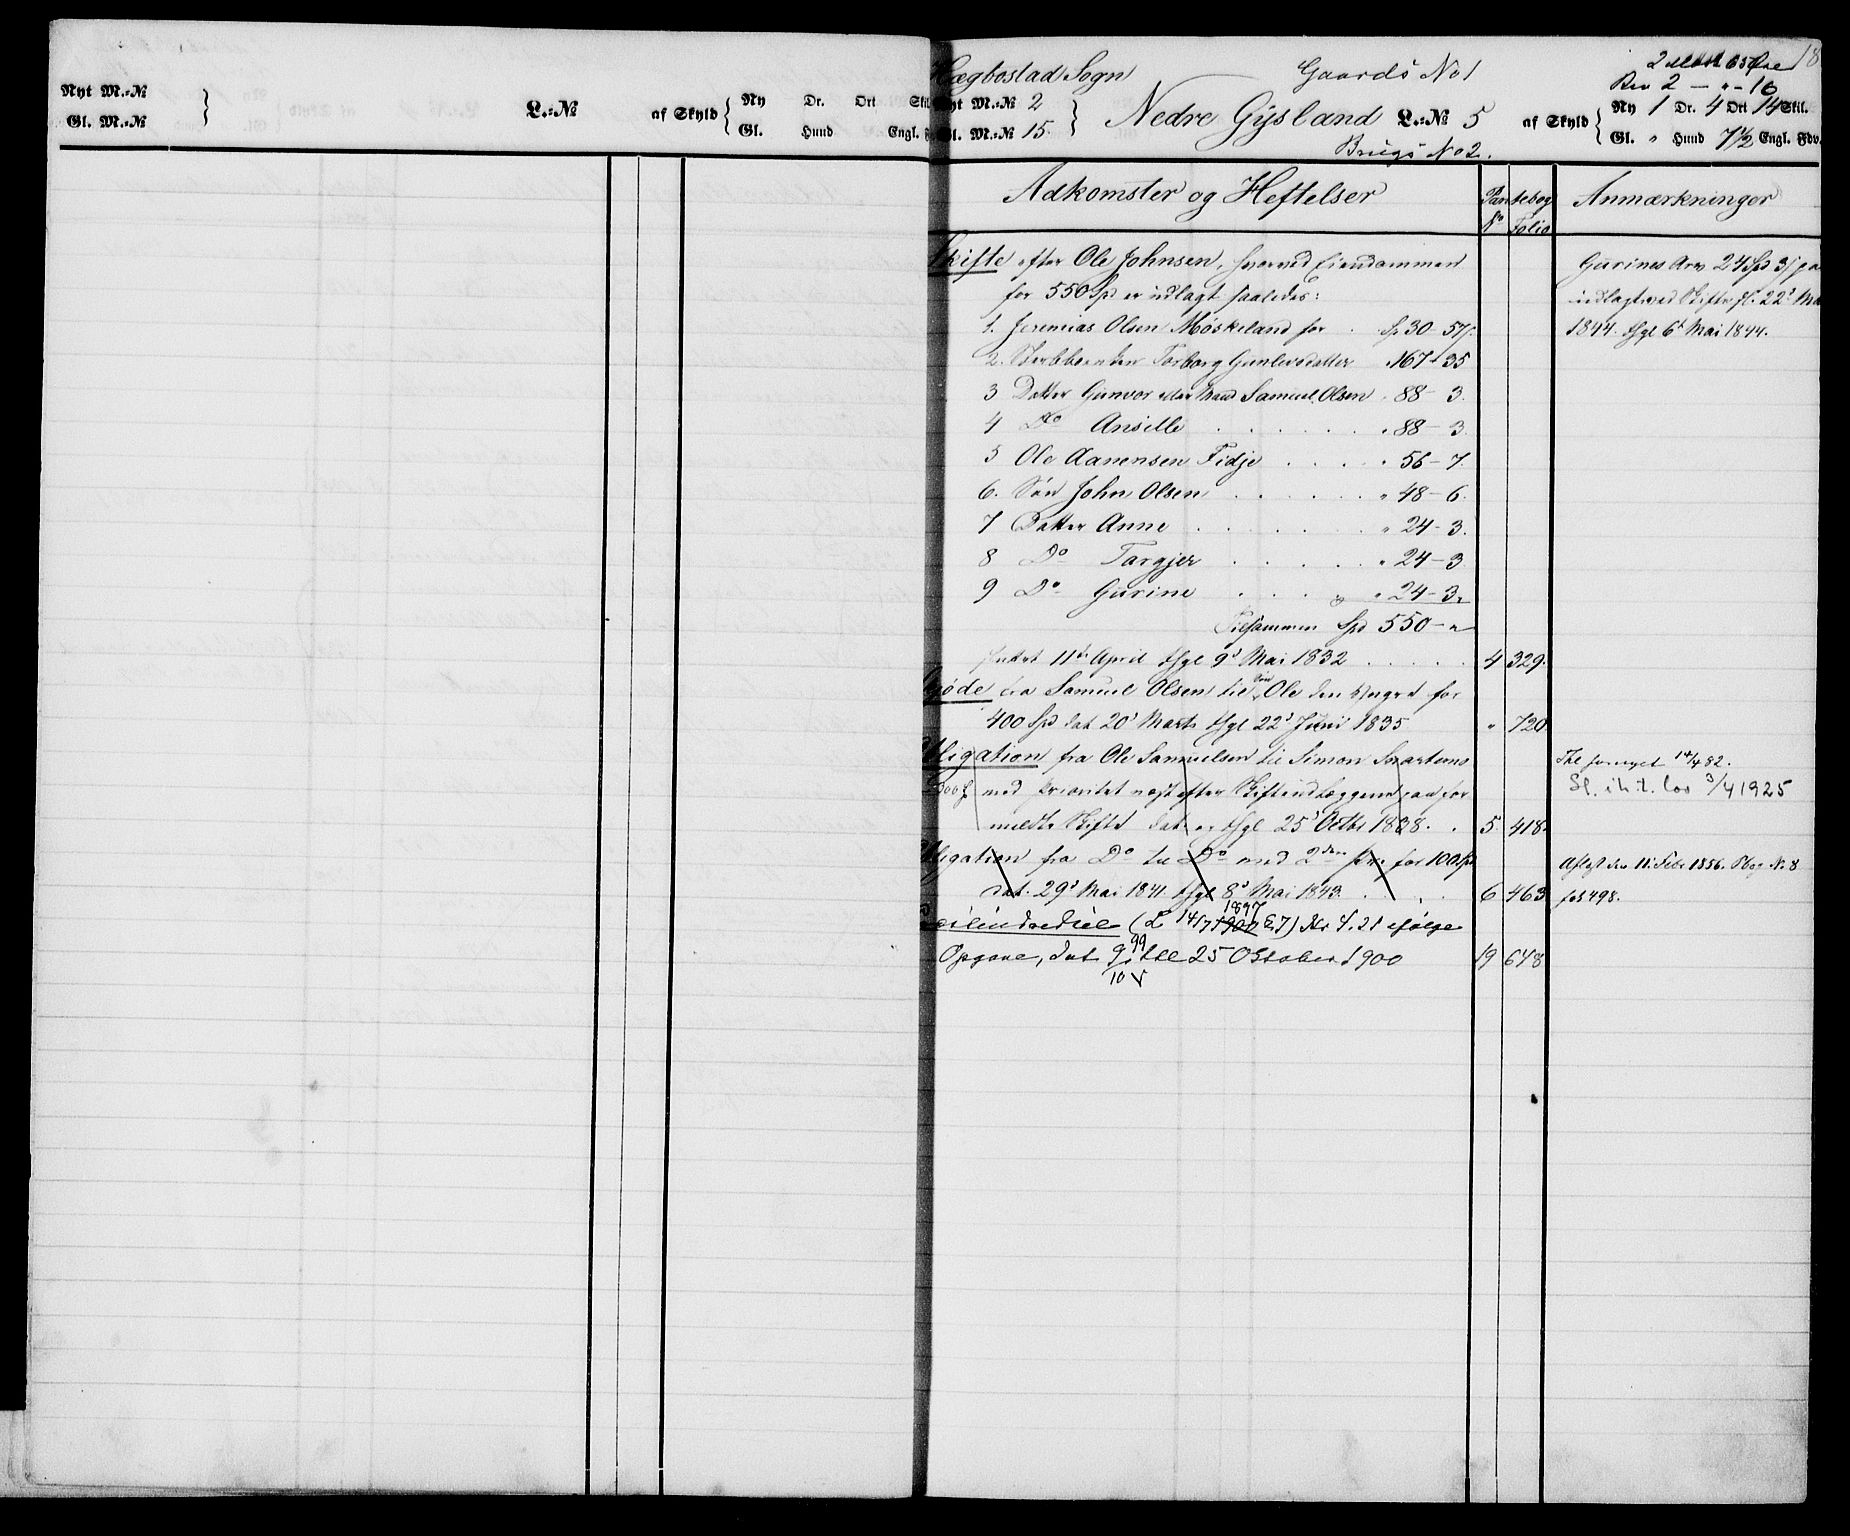 Nyt M.-№
Gl. M.-№
L.-№ af Skyld
Ny Dr. Ort
Gl. Hund Engl.
18
Hægbostad Sogn Gaards No 1 2 Mark 65 Øre
Rev 2 - " - 16
Nyt M.-№ 2 Nedre Gysland L.-№ 5 af Skyld Ny 1 Dr. 4 Ort 14 Skil.
Gl. M.-№ 15. Gl. " Hund 7½ Engl. Fdv.
Brugs No 2.
Adkomster og Heftelser Pantebog Anmærkninger
No Folio
Skifte efter Ole Johnsen, hvorved Eiendommen
for 550 Spd er udlagt saaledes:
1. Jeremias Olsen Møskeland for Sp 30 - 57
2. Torborg Gunlevsdatter " 167 - 35
3 Datter Gunvor eller Mand Samuel Olsen " 88 - 3.
4 Do Ansille " 88 - 3.
5 Ole Aanensen Fidje " 56 - 7.
6. Søn John Olsen " 48 - 6.
7 Datter Anne " 24 - 3.
8 Do Targjer " 24 - 3
9 Do Gurine " 24 - 3.
Tilsammen Spd 550 - "
sluttet 11te April thgl 9d Mai 1832 4 329.
Skjøde fra Samuel Olsen til Søn Ole den yngre for
400 Spd dat 20d Marts thgl 22d Juni 1835 " 720.
Obligation fra Ole Samuelsen til Simon
med Prioritet næst efter paa for
meldte Skifte dat. og thgl 25d Octbr 1838. 5. 418.
Obligation fra Do til Do med 2den Pr. for 100 Spd
dat. 29d Mai 1841. thgl 8d Mai 1843. 6 463
(L 14/7 1897 § 7) No 4. 21 ifølge
Opgave, dat 9/10 99 tll 25 Oktober 1900 19 648
Gurines Arv 24 Spd 3
udlagt ved Skifte sl. 22d
1844. thgl 6d Mai 1844.
Thl fornyet 14/4 82.
Sl. i h. t. lov 3/4 1925
Aflyst den 11. Febr. 1856. Pbog No. 8
fol 498.